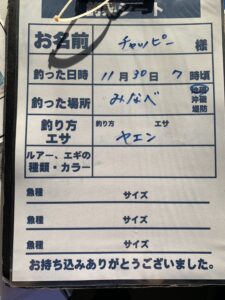 お名前 チャッピー 様
釣った日時 11月30日 7時頃
釣った場所 みなべ 沖磯 堤防
釣り方 エサ 釣り方 ヤエン エサ
ルアー、エギの種類・カラー
魚種 サイズ
魚種 サイズ
魚種 サイズ
お持ち込みありがとうございました。